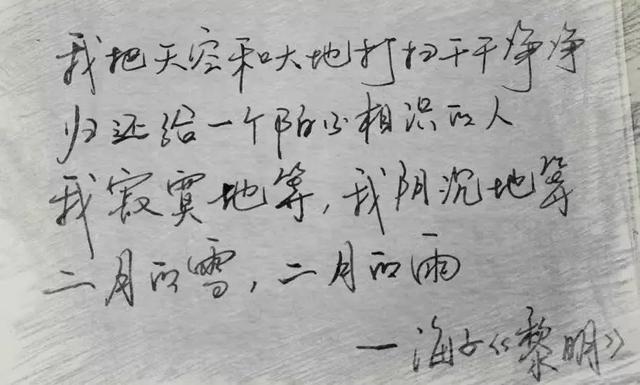 我把天空和大地打扫干干净净
归还给一个陌不相识的人
我寂寞地等,我阴沉地等
二月的雪,二月的雨
—海子《黎明》